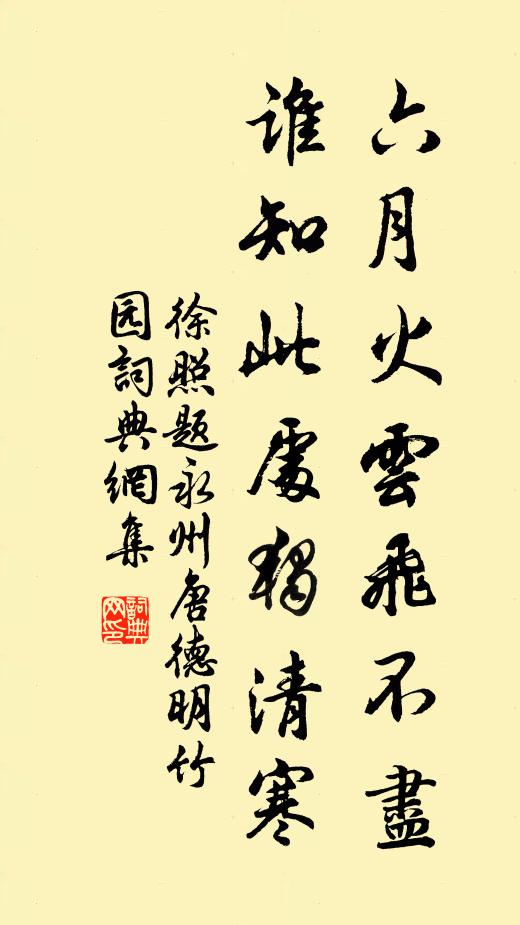 六月火雲飛不盡
誰知此處獨清寒
徐照题永州唐德明竹
园詞典網集
詞典
网印